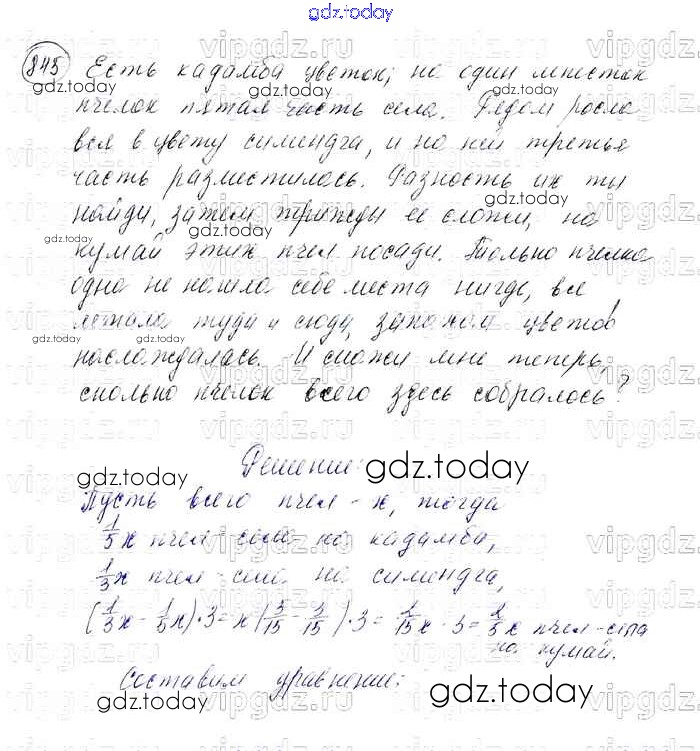 gdz.today
845 Есть кадамба цветок; на один лепесток
пчелок пятая часть села. Рядом росла
вся в цвету сименгда, и на ней третья
часть разместилась. Разность их ты
найди, затем трижды ее сложи, на
кумай этих пчел посади. Только пчелка
одна не нашла себе места нигде, все
летала туда и сюда, запахом цветов
наслаждалась. И скажи мне теперь,
сколько пчелок всего здесь собралось?
Решение:
Пусть всего пчел - x, тогда
1/5x пчел - село на кадамба,
1/3x пчел - село на сименгда,
(1/3x - 1/5x)·3 = x(5/15 - 3/15)·3 = 2/15x · 3 = 2/5x пчел - села
на кумай.
Составим уравнение: